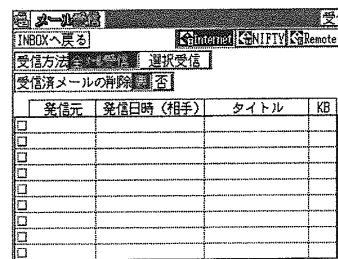 メール受信 受
INBOXへ戻る Internet NIFTY Remote
受信方法 全メール受信 選択受信
受信済メールの削除 要 否
発信元 発信日時（相手） タイトル KB